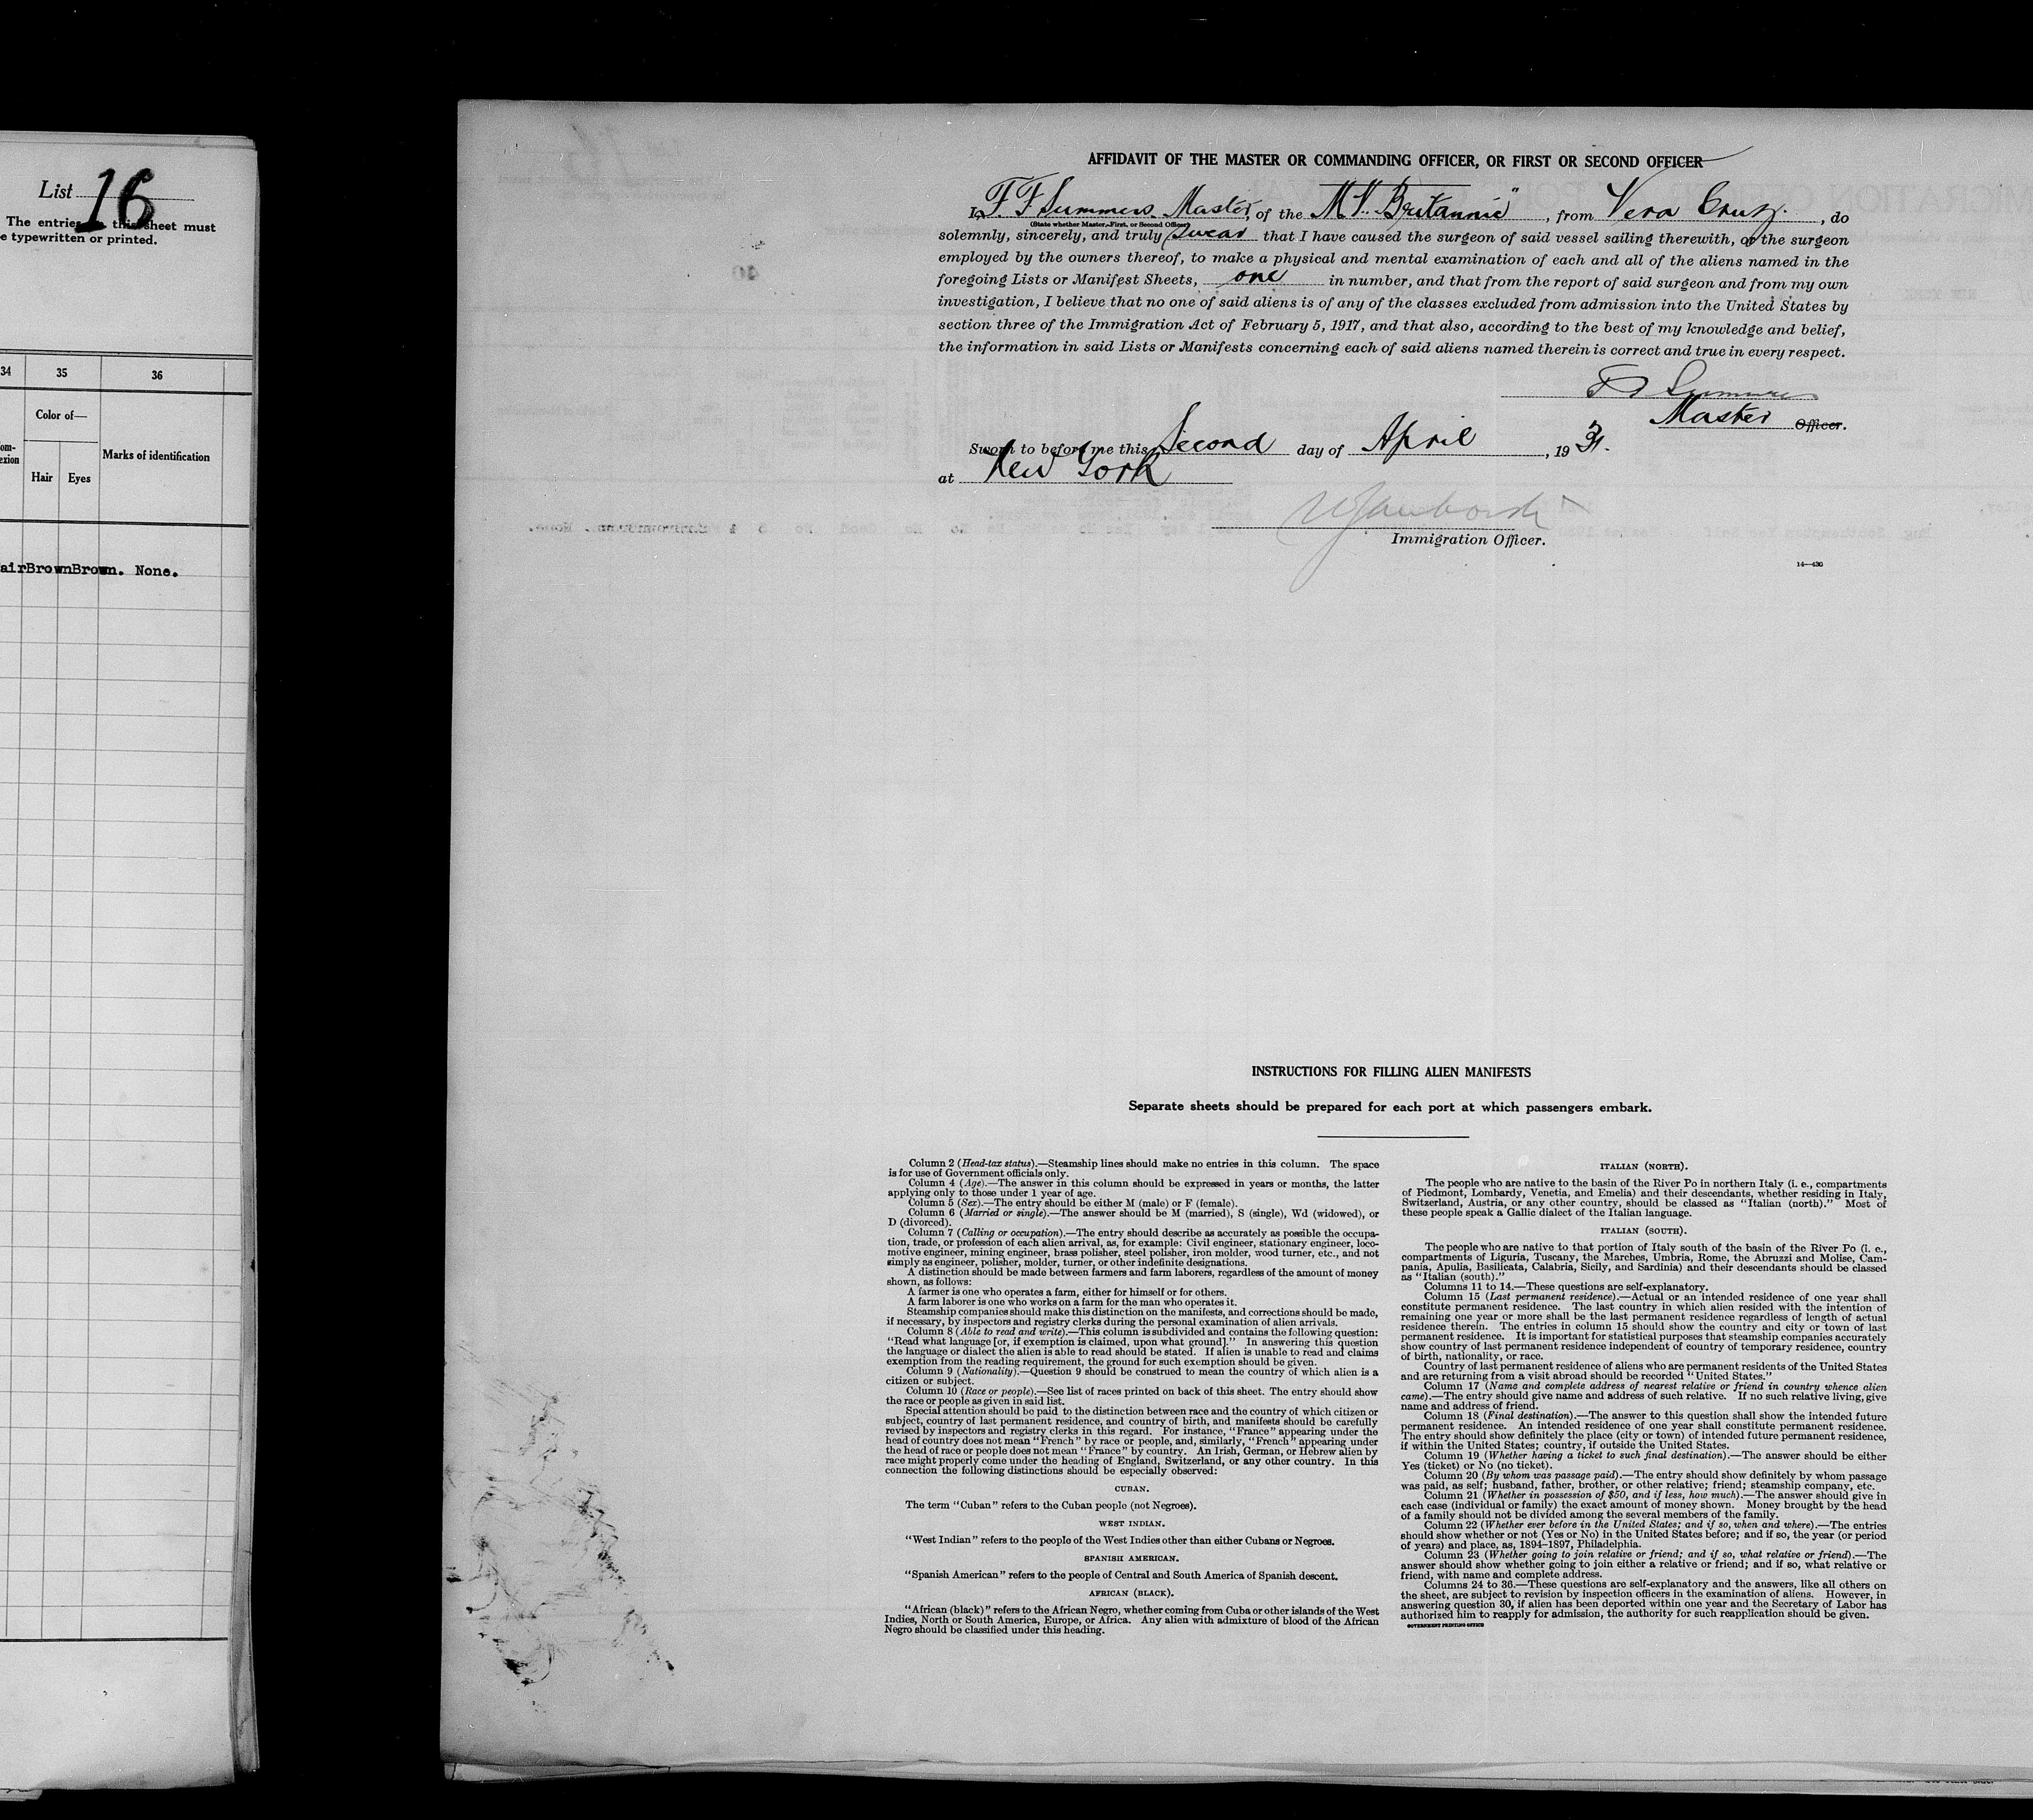 List 16
The entries on this sheet must
e typewritten or printed.
34 35 36
Color of—
om-
exion
Hair Eyes
Marks of identification
airBrownBrown. None.
AFFIDAVIT OF THE MASTER OR COMMANDING OFFICER, OR FIRST OR SECOND OFFICER
I, F. F. Summers. Master, of the M.V. "Britannic", from Vera Cruz., do
(State whether Master, First, or Second Officer)
solemnly, sincerely, and truly swear that I have caused the surgeon of said vessel sailing therewith, or the surgeon
employed by the owners thereof, to make a physical and mental examination of each and all of the aliens named in the
foregoing Lists or Manifest Sheets, one in number, and that from the report of said surgeon and from my own
investigation, I believe that no one of said aliens is of any of the classes excluded from admission into the United States by
section three of the Immigration Act of February 5, 1917, and that also, according to the best of my knowledge and belief,
the information in said Lists or Manifests concerning each of said aliens named therein is correct and true in every respect.
F F Summers
Master Officer.
Sworn to before me this Second day of April, 1931.
at New York
Immigration Officer.
14—430
INSTRUCTIONS FOR FILLING ALIEN MANIFESTS
Separate sheets should be prepared for each port at which passengers embark.
Column 2 (Head-tax status).—Steamship lines should make no entries in this column. The space
is for use of Government officials only.
Column 4 (Age).—The answer in this column should be expressed in years or months, the latter
applying only to those under 1 year of age.
Column 5 (Sex).—The entry should be either M (male) or F (female).
Column 6 (Married or single).—The answer should be M (married), S (single), Wd (widowed), or
D (divorced).
Column 7 (Calling or occupation).—The entry should describe as accurately as possible the occupa-
tion, trade, or profession of each alien arrival, as, for example: Civil engineer, stationary engineer, loco-
motive engineer, mining engineer, brass polisher, steel polisher, iron molder, wood turner, etc., and not
simply as engineer, polisher, molder, turner, or other indefinite designations.
A distinction should be made between farmers and farm laborers, regardless of the amount of money
shown, as follows:
A farmer is one who operates a farm, either for himself or for others.
A farm laborer is one who works on a farm for the man who operates it.
Steamship companies should make this distinction on the manifests, and corrections should be made,
if necessary, by inspectors and registry clerks during the personal examination of alien arrivals.
Column 8 (Able to read and write).—This column is subdivided and contains the following question:
"Read what language [or, if exemption is claimed, upon what ground]." In answering this question
the language or dialect the alien is able to read should be stated. If alien is unable to read and claims
exemption from the reading requirement, the ground for such exemption should be given.
Column 9 (Nationality).—Question 9 should be construed to mean the country of which alien is a
citizen or subject.
Column 10 (Race or people).—See list of races printed on back of this sheet. The entry should show
the race or people as given in said list.
Special attention should be paid to the distinction between race and the country of which citizen or
subject, country of last permanent residence, and country of birth, and manifests should be carefully
revised by inspectors and registry clerks in this regard. For instance, "France" appearing under the
head of country does not mean "French" by race or people, and, similarly, "French" appearing under
the head of race or people does not mean "France" by country. An Irish, German, or Hebrew alien by
race might properly come under the heading of England, Switzerland, or any other country. In this
connection the following distinctions should be especially observed:
CUBAN.
The term "Cuban" refers to the Cuban people (not Negroes).
WEST INDIAN.
"West Indian" refers to the people of the West Indies other than either Cubans or Negroes.
SPANISH AMERICAN.
"Spanish American" refers to the people of Central and South America of Spanish descent.
AFRICAN (BLACK).
"African (black)" refers to the African Negro, whether coming from Cuba or other islands of the West
Indies, North or South America, Europe, or Africa. Any alien with admixture of blood of the African
Negro should be classified under this heading.
ITALIAN (NORTH).
The people who are native to the basin of the River Po in northern Italy (i. e., compartments
of Piedmont, Lombardy, Venetia, and Emelia) and their descendants, whether residing in Italy,
Switzerland, Austria, or any other country, should be classed as "Italian (north)." Most of
these people speak a Gallic dialect of the Italian language.
ITALIAN (SOUTH).
The people who are native to that portion of Italy south of the basin of the River Po (i. e.,
compartments of Liguria, Tuscany, the Marches, Umbria, Rome, the Abruzzi and Molise, Cam-
pania, Apulia, Basilicata, Calabria, Sicily, and Sardinia) and their descendants should be classed
as "Italian (south)."
Columns 11 to 14.—These questions are self-explanatory.
Column 15 (Last permanent residence).—Actual or an intended residence of one year shall
constitute permanent residence. The last country in which alien resided with the intention of
remaining one year or more shall be the last permanent residence regardless of length of actual
residence therein. The entries in column 15 should show the country and city or town of last
permanent residence. It is important for statistical purposes that steamship companies accurately
show country of last permanent residence independent of country of temporary residence, country
of birth, nationality, or race.
Country of last permanent residence of aliens who are permanent residents of the United States
and are returning from a visit abroad should be recorded "United States."
Column 17 (Name and complete address of nearest relative or friend in country whence alien
came).—The entry should give name and address of such relative. If no such relative living, give
name and address of friend.
Column 18 (Final destination).—The answer to this question shall show the intended future
permanent residence. An intended residence of one year shall constitute permanent residence.
The entry should show definitely the place (city or town) of intended future permanent residence,
if within the United States; country, if outside the United States.
Column 19 (Whether having a ticket to such final destination).—The answer should be either
Yes (ticket) or No (no ticket).
Column 20 (By whom was passage paid).—The entry should show definitely by whom passage
was paid, as self; husband, father, brother, or other relative; friend; steamship company, etc.
Column 21 (Whether in possession of $50, and if less, how much).—The answer should give in
each case (individual or family) the exact amount of money shown. Money brought by the head
of a family should not be divided among the several members of the family.
Column 22 (Whether ever before in the United States; and if so, when and where).—The entries
should show whether or not (Yes or No) in the United States before; and if so, the year (or period
of years) and place, as, 1894–1897, Philadelphia.
Column 23 (Whether going to join relative or friend; and if so, what relative or friend).—The
answer should show whether going to join either a relative or friend; and if so, what relative or
friend, with name and complete address.
Columns 24 to 36.—These questions are self-explanatory and the answers, like all others on
the sheet, are subject to revision by inspection officers in the examination of aliens. However, in
answering question 30, if alien has been deported within one year and the Secretary of Labor has
authorized him to reapply for admission, the authority for such reapplication should be given.
GOVERNMENT PRINTING OFFICE